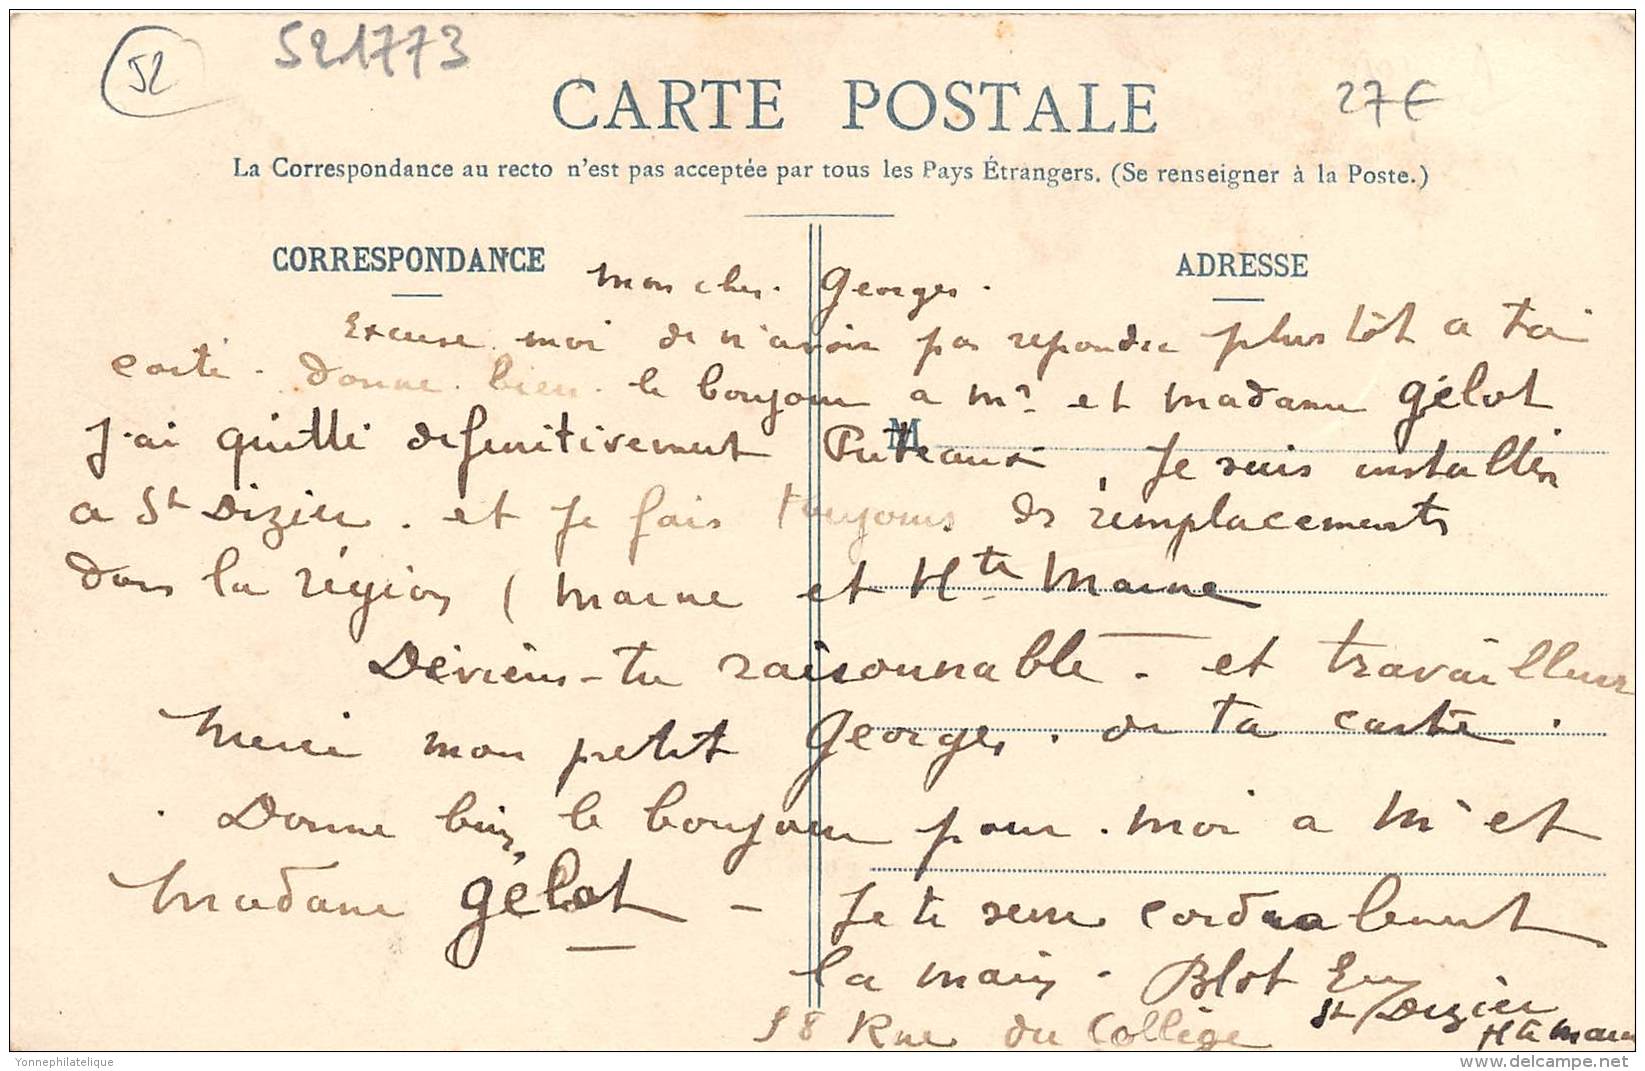 52
521773
27€
CARTE POSTALE
La Correspondance au recto n'est pas acceptée par tous les Pays Étrangers. (Se renseigner à la Poste.)
CORRESPONDANCE
ADRESSE
mon cher Georges.
Excuse moi de n'avoir pas repondu plus tôt a ta
carte. donne bien le bonjour a Mr et madame Gélot
M
J'ai quitté definitivement Puteaux, Je suis installer
a St Dizier. et Je fais toujours des remplacements
dans la région (Marne et Hte Marne
Deviens-tu raisonnable. et travailleur
Merci mon petit Georges. de ta carte.
. Donne bien le bonjour pour moi a Mr et
Madame Gélot - Je te serre cordialement
la main. Blot
St Dizier
58 Rue du Collège
Hte Marne
Yonnephilatelique
delcampe.net